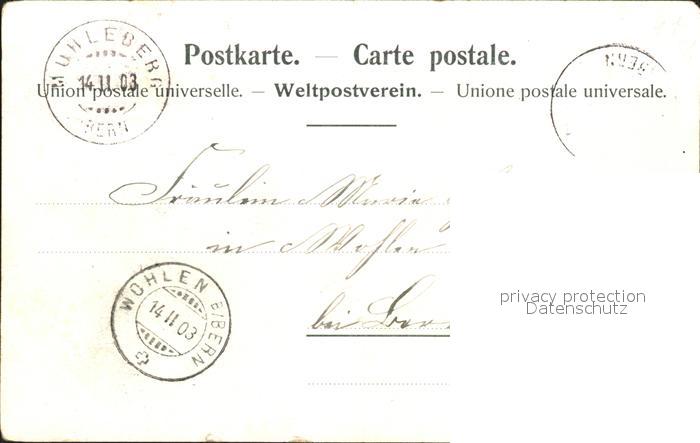 MÜHLEBERG
14.II.03
BERN
Postkarte. — Carte postale.
Union postale universelle. — Weltpostverein. — Unione postale universale.
BERN
Fräulein Marie
in Wohlen
bei Ber
WOHLEN B/BERN
14 II 03
privacy protection
Datenschutz